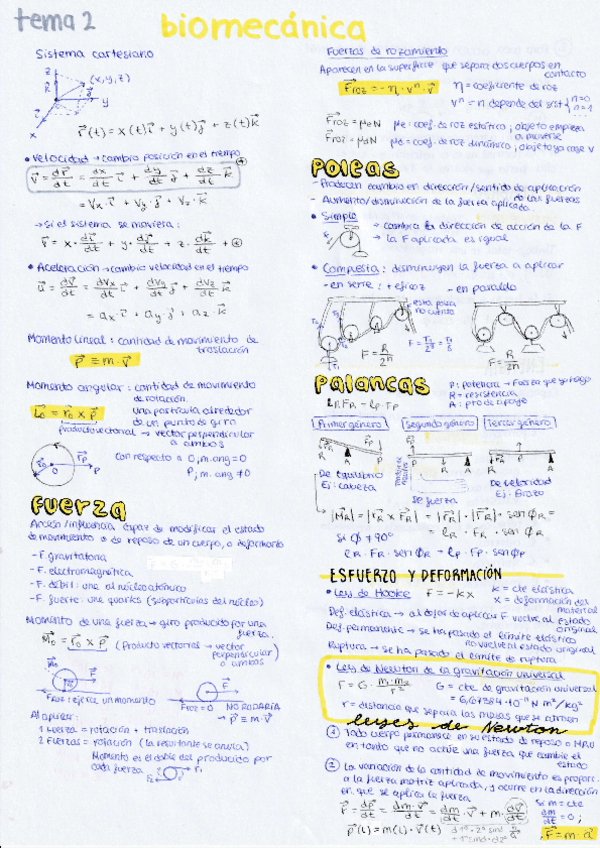 tema 2
biomecánica
Sistema cartesiano
z
(x,y,z)
y
x
r⃗(t) = x(t)i⃗ + y(t)j⃗ + z(t)k⃗
• Velocidad → cambio posición en el tiempo
v⃗ = dr⃗/dt = dx/dt i⃗ + dy/dt j⃗ + dz/dt k⃗
= Vx i⃗ + Vy j⃗ + Vz k⃗
→ Si el sistema se moviera:
v⃗ = x · di⃗/dt + y · dj⃗/dt + z · dk⃗/dt +
• Aceleración → cambio velocidad en el tiempo
a⃗ = dv⃗/dt = dVx/dt i⃗ + dVy/dt j⃗ + dVz/dt k⃗
= ax i⃗ + ay j⃗ + az k⃗
Momento lineal: cantidad de movimiento de
traslación
p⃗ = m · v⃗
Momento angular: cantidad de movimiento
de rotación.
L⃗o = r⃗o x p⃗
una partícula alrededor
de un punto de giro
producto vectorial → vector perpendicular
a ambos
con respecto a O; m.ang = 0
P; m.ang ≠ 0
Fuerza
Acción/influencia capaz de modificar el estado
de movimiento o de reposo de un cuerpo, o deformarlo
- F. gravitatoria
- F. electromagnética
- F. débil: une al núcleo atómico
- F. fuerte: une quarks (subpartículas del núcleo)
Momento de una fuerza → giro producido por una
fuerza.
M⃗o = r⃗o x F⃗ (Producto vectorial → vector
perpendicular
a ambos
F≠0 = ejerce un momento
F≠0 = 0 NO RODARÍA
→ p⃗ = m · v⃗
Al aplicar:
1 Fuerza = rotación + traslación
2 Fuerzas = rotación (la resultante se anula)
Momento es el doble del producido por
cada fuerza
Fuerzas de rozamiento
Aparecen en la superficie que separa dos cuerpos en
contacto
F⃗roz = -η · vⁿ · v⃗
η = coeficiente de roz
vⁿ = n depende del sist
n=0
n=1
F⃗roz = μeN
μe: coef. de roz estático; objeto empieza
a moverse
F⃗roz = μdN
μd: coef. de roz dinámico; objeto ya con V
POLEAS
- Producen cambio en dirección/sentido de aplicación
de las fuerzas
- Aumento/disminución de la fuerza aplicada.
• Simple
→ cambia la dirección de acción de la F
→ la F aplicada es igual
• Compuesta: disminuyen la fuerza a aplicar
- en serie: + eficaz
- en paralelo
esta polea
no cuenta
F = R/2ⁿ
F = R/2n
Palancas
P: potencia → Fuerza que yo hago
R = resistencia
A: pto de apoyo
ℓR · FR = ℓP · FP
Primer género
Segundo género
Tercer género
R A P
P R A
R P A
De equilibrio
Ej: cabeza
De fuerza
De velocidad
Ej: Brazo
|M⃗R| = |r⃗R x F⃗R| = |r⃗R| · |F⃗R| · sen ΦR =
= ℓR · FR · sen ΦR
Si Φ ≠ 90°
ℓR · FR · sen ΦR = ℓP · FP · sen ΦP
ESFUERZO Y DEFORMACIÓN
• Ley de Hooke F = -kx
k = cte elástica
x = deformación del
material
Def. elástica → al dejar de aplicar F vuelve al estado
original
Def. permanente → se ha pasado el límite elástico
no vuelve al estado original
Ruptura → se ha pasado el límite de ruptura
• Ley de Newton de la gravitación universal
F = G · m₁·m₂/r²
G = cte de gravitación universal
= 6,67384 · 10⁻¹¹ N m²/kg²
r = distancia que separa las masas que se atraen
leyes de Newton
① Todo cuerpo permanece en su estado de reposo o MRU
en tanto que no actúe una fuerza que cambie el
estado
② La variación de la cantidad de movimiento es proporc.
a la fuerza motriz aplicada, y ocurre en la dirección
en que se aplica la fuerza
F⃗ = dp⃗/dt = dm·v⃗/dt = dm/dt · v⃗ + m · dv⃗/dt
Si m = cte
dm/dt = 0;
p⃗(t) = m(t) · v⃗(t)
F⃗ = m · a⃗